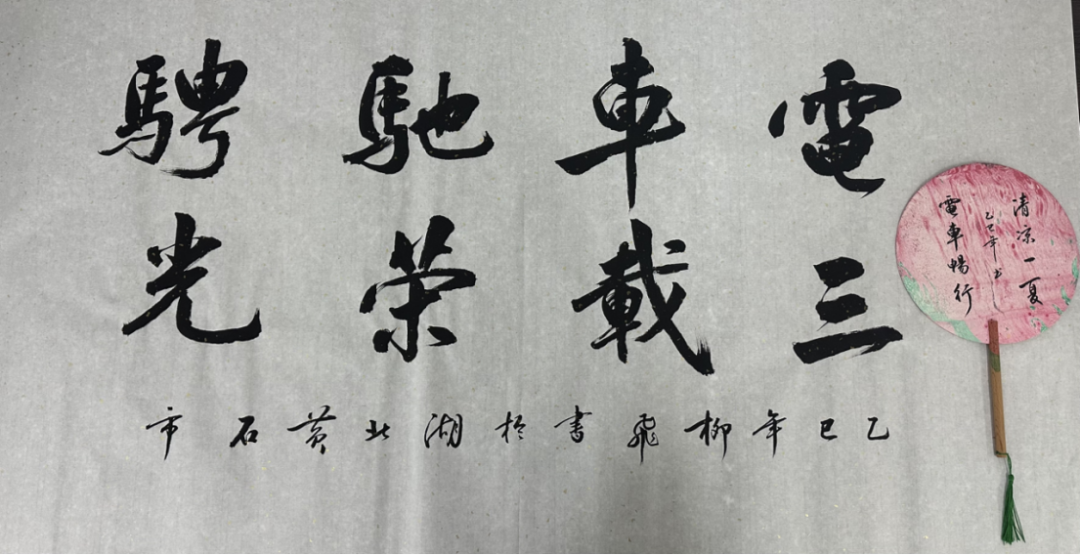 電車馳騁
三載榮光
乙巳年柳飛書於湖北黃石市
清凉一夏
乙巳年书
電車暢行